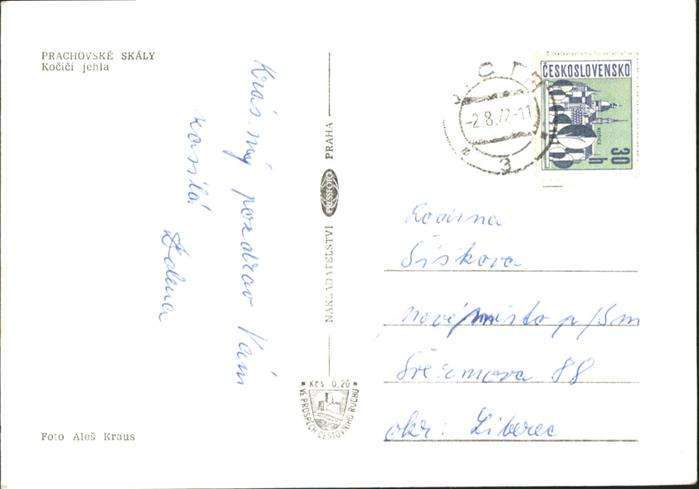 PRACHOVSKÉ SKÁLY
Kočičí jehla
Krásný pozdrav Vám
zasílá
Zdena
Foto Aleš Kraus
NAKLADATELSTVÍ PRESSFOTO PRAHA
Kčs 0,20
VE PROSPĚCH CESTOVNÍHO RUCHU
ČESKOSLOVENSKO
30 h
-2.8.72-11
3
Rodina
Šiškova
Nové město p/Sm
88
okr: Liberec